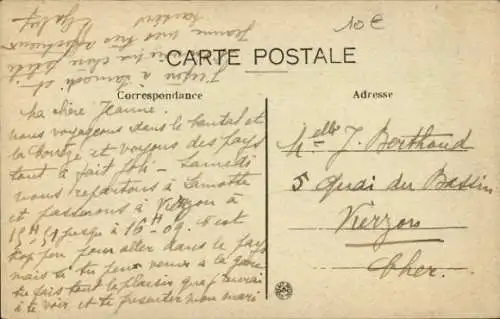 10€
CARTE POSTALE
Correspondance
Adresse
Ma chère Jeanne.
nous voyageons dans le Cantal et
la Corrèze et voyons des pays
tout à fait joli - Samedi
nous repartons à Lamotte
et passerons à Vierzon à
15H 51 jusqu'à 16H 09. C'est
trop peu pour aller dans le pays
mais si tu peux venir à la gare
tu fais tout le plaisir que j'aurai
à te voir et te présenter mon mari
à samedi et
ma chère petite
Jeanne mes très affectueux
baisers
Melle J. Berthaud
5 Quai du Bassin
Vierzon
Cher.